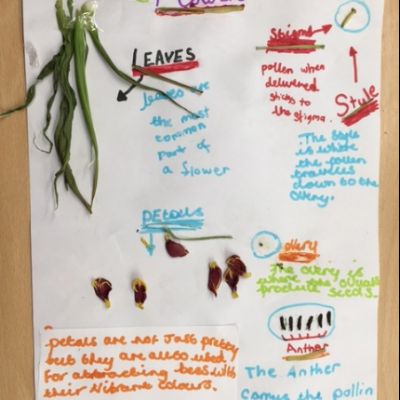 LEAVES
leaves are
the most
common
part of
a flower
Stigma
pollen when
delivered
sticks to
the stigma.
Style
The Style
is where
the pollen
travels
down to the
overy.
PETALS
overy
The overy is
where the
produce seeds.
petals are not Jast pretty
but they are also used
for attracting bees with
their vibrant colours.
Anther
The Anther
the pollin